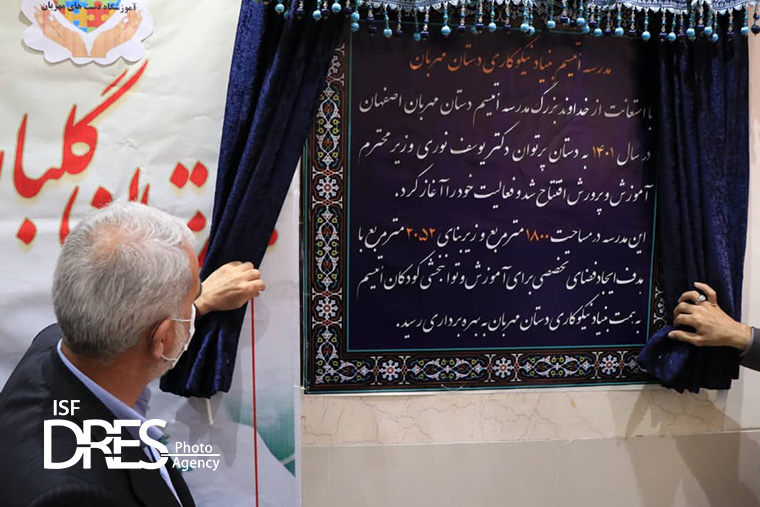 آموزشگاه دست های مهربان
گلبار
مدرسه اُتیسم بنیاد نیکوکاری دستان مهربان
با استعانت از خداوند بزرگ مدرسه اُتیسم دستان مهربان اصفهان
در سال ۱۴۰۱ به دستان پرتوان دکتر یوسف نوری وزیر محترم
آموزش و پرورش افتتاح شد و فعالیت خود را آغاز کرد.
این مدرسه در مساحت ۱۸۰۰ مترمربع و زیربنای ۲۰۵۲ مترمربع با
هدف ایجاد فضای تخصصی برای آموزش و توانبخشی کودکان اُتیسم
به همت بنیاد نیکوکاری دستان مهربان به بهره برداری رسید.
ISF
DRES Photo
Agency